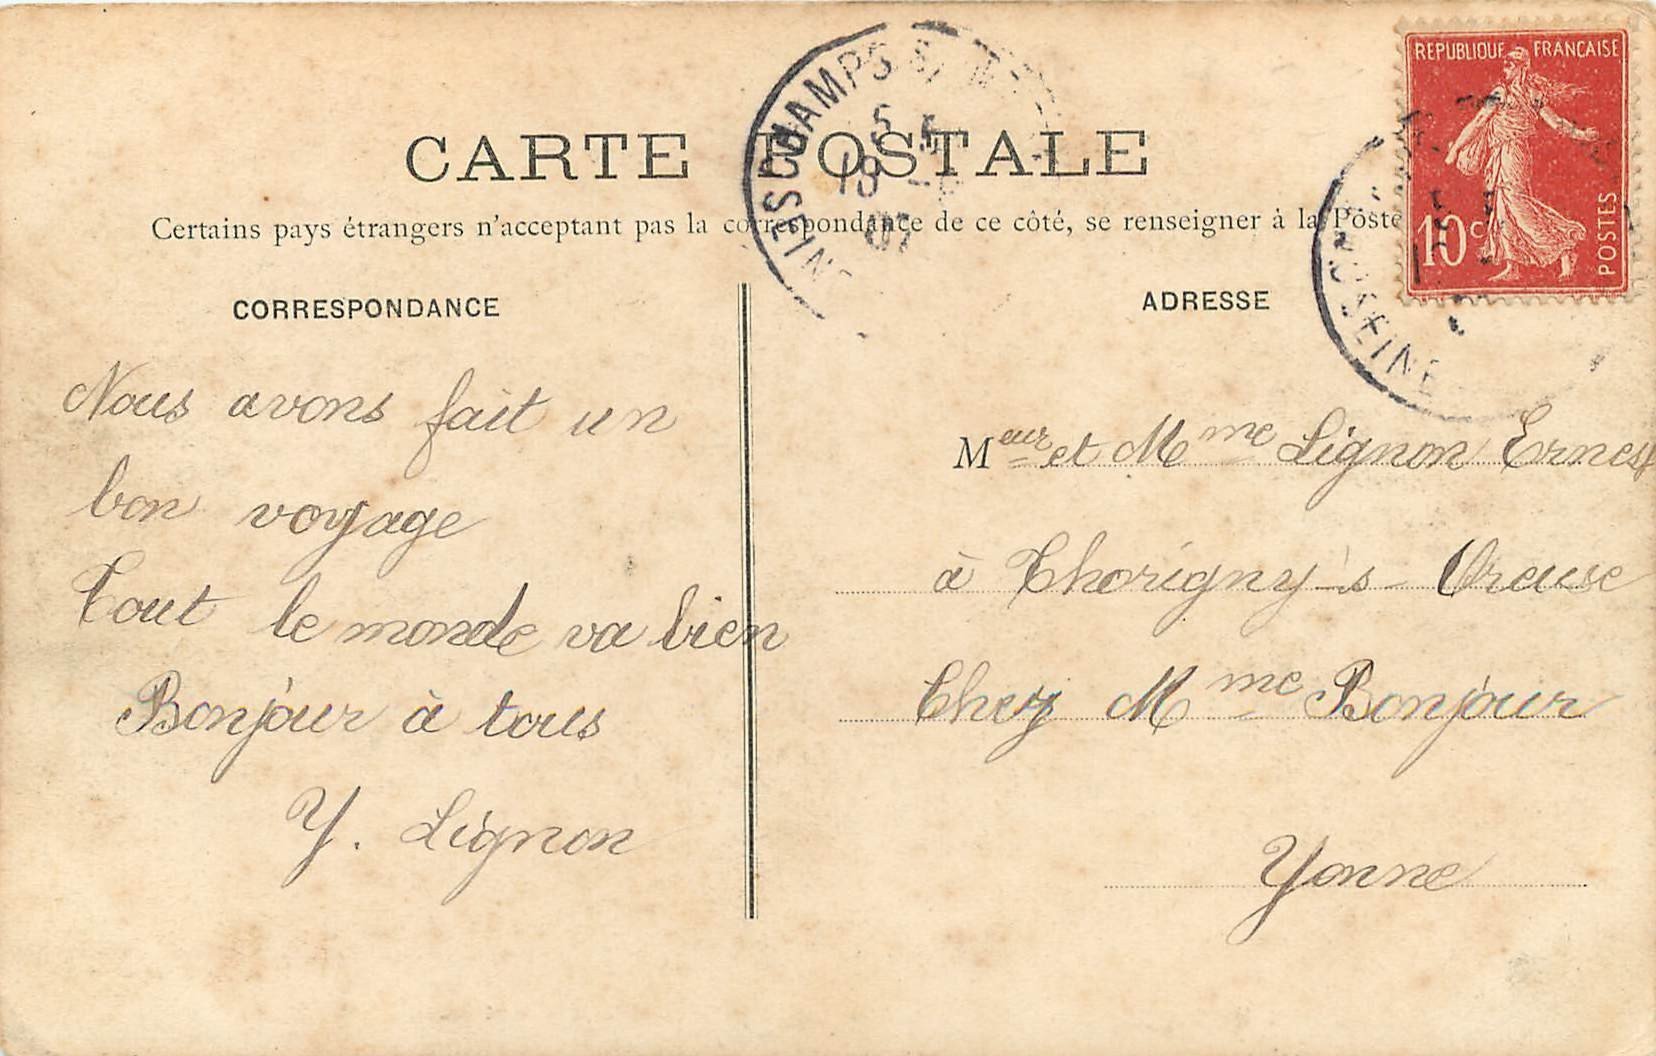 CARTE POSTALE
Certains pays étrangers n'acceptant pas la correspondance de ce côté, se renseigner à la Poste
CORRESPONDANCE
Nous avons fait un
bon voyage
Tout le monde va bien
Bonjour à tous
Y. Lignon
ADRESSE
Meur et Mme Lignon Ernest
à Thorigny-s-Oreuse
Chez Mme Bonjour
Yonne
REPUBLIQUE FRANCAISE
10c
POSTES
07
SEINE